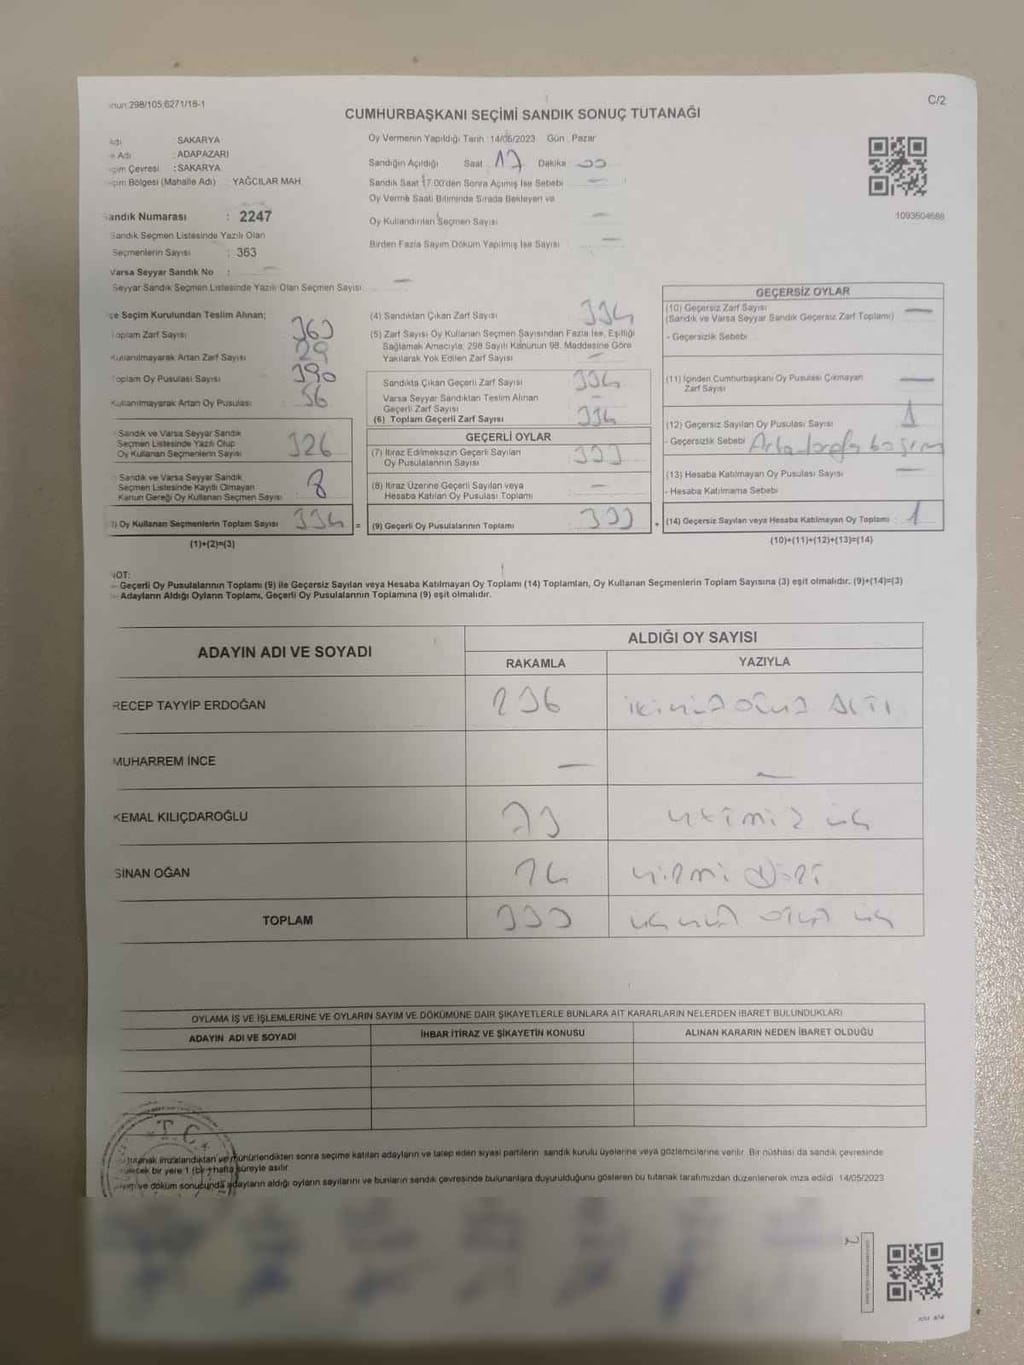 298/105;6271/18-1
C/2
CUMHURBAŞKANI SEÇİMİ SANDIK SONUÇ TUTANAĞI
SAKARYA
Adı : ADAPAZARI
Çevresi : SAKARYA
Bölgesi (Mahalle Adı) YAĞCILAR MAH
Sandık Numarası : 2247
Sandık Seçmen Listesinde Yazılı Olan
Seçmenlerin Sayısı : 363
Varsa Seyyar Sandık No :
Seyyar Sandık Seçmen Listesinde Yazılı Olan Seçmen Sayısı: —
Oy Vermenin Yapıldığı Tarih :14/05/2023 Gün : Pazar
Sandığın Açıldığı Saat 17 Dakika 00
Sandık Saat 17.00'den Sonra Açılmış İse Sebebi —
Oy Verme Saati Bitiminde Sırada Bekleyen ve
Oy Kullandırılan Seçmen Sayısı —
Birden Fazla Sayım Döküm Yapılmış İse Sayısı —
1093604688
İlçe Seçim Kurulundan Teslim Alınan;
Toplam Zarf Sayısı 363
Kullanılmayarak Artan Zarf Sayısı 29
Toplam Oy Pusulası Sayısı 390
Kullanılmayarak Artan Oy Pusulası 56
Sandık ve Varsa Seyyar Sandık
Seçmen Listesinde Yazılı Olup
Oy Kullanan Seçmenlerin Sayısı 326
Sandık ve Varsa Seyyar Sandık
Seçmen Listesinde Kayıtlı Olmayan
Kanun Gereği Oy Kullanan Seçmen Sayısı 8
Oy Kullanan Seçmenlerin Toplam Sayısı 334 =
(1)+(2)=(3)
(4) Sandıktan Çıkan Zarf Sayısı 334
(5) Zarf Sayısı Oy Kullanan Seçmen Sayısından Fazla İse, Eşitliği
Sağlamak Amacıyla, 298 Sayılı Kanunun 98. Maddesine Göre
Yakılarak Yok Edilen Zarf Sayısı —
Sandıkta Çıkan Geçerli Zarf Sayısı 334
Varsa Seyyar Sandıktan Teslim Alınan
Geçerli Zarf Sayısı —
(6) Toplam Geçerli Zarf Sayısı 334
GEÇERLİ OYLAR
(7) İtiraz Edilmeksizin Geçerli Sayılan
Oy Pusulalarının Sayısı 333
(8) İtiraz Üzerine Geçerli Sayılan veya
Hesaba Katılan Oy Pusulası Toplamı —
(9) Geçerli Oy Pusulalarının Toplamı 333 +
GEÇERSİZ OYLAR
(10) Geçersiz Zarf Sayısı
(Sandık ve Varsa Seyyar Sandık Geçersiz Zarf Toplamı) —
- Geçersizlik Sebebi
(11) İçinden Cumhurbaşkanı Oy Pusulası Çıkmayan
Zarf Sayısı —
(12) Geçersiz Sayılan Oy Pusulası Sayısı 1
- Geçersizlik Sebebi
(13) Hesaba Katılmayan Oy Pusulası Sayısı —
- Hesaba Katılmama Sebebi
(14) Geçersiz Sayılan veya Hesaba Katılmayan Oy Toplamı 1
(10)+(11)+(12)+(13)=(14)
NOT:
- Geçerli Oy Pusulalarının Toplamı (9) ile Geçersiz Sayılan veya Hesaba Katılmayan Oy Toplamı (14) Toplamları, Oy Kullanan Seçmenlerin Toplam Sayısına (3) eşit olmalıdır. (9)+(14)=(3)
- Adayların Aldığı Oyların Toplamı, Geçerli Oy Pusulalarının Toplamına (9) eşit olmalıdır.
ADAYIN ADI VE SOYADI
ALDIĞI OY SAYISI
RAKAMLA YAZIYLA
RECEP TAYYİP ERDOĞAN 236 ikiyüz otuz altı
MUHARREM İNCE — —
KEMAL KILIÇDAROĞLU 73 yetmiş üç
SİNAN OĞAN 24 yirmi dört
TOPLAM 333 üçyüz otuz üç
OYLAMA İŞ VE İŞLEMLERİNE VE OYLARIN SAYIM VE DÖKÜMÜNE DAİR ŞİKAYETLERLE BUNLARA AİT KARARLARIN NELERDEN İBARET BULUNDUKLARI
ADAYIN ADI VE SOYADI İHBAR İTİRAZ VE ŞİKAYETİN KONUSU ALINAN KARARIN NEDEN İBARET OLDUĞU
T.C.
tutanak imzalandıktan ve mühürlendikten sonra seçime katılan adayların ve talep eden siyasi partilerin sandık kurulu üyelerine veya gözlemcilerine verilir. Bir nüshası da sandık çevresinde
bir yere 1 (bir) hafta süreyle asılır.
ve döküm sonucunda adayların aldığı oyların sayılarını ve bunların sandık çevresinde bulunanlara duyurulduğunu gösteren bu tutanak tarafımızdan düzenlenerek imza edildi. 14/05/2023
2